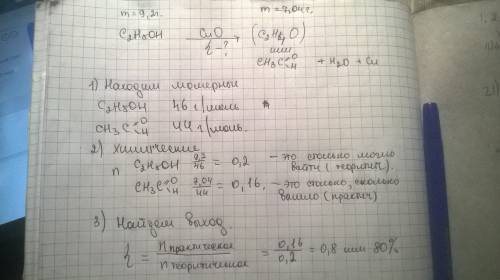 m=9,2г. m=7,04г.
C2H5OH CuO (C2H4O)
η-? или
CH3C=O-H + H2O + Cu
1) Находим молярные
C2H5OH 46 г/моль
CH3C=O-H 44 г/моль.
2) Химические
n C2H5OH 9,2/46 = 0,2 - это сколько могло
выйти (теоретич).
CH3C=O-H 7,04/44 = 0,16, - это столько, сколько
вышло (практич)
3) Найдем выход
η = n практическое / n теоретическое = 0,16/0,2 = 0,8 или 80%